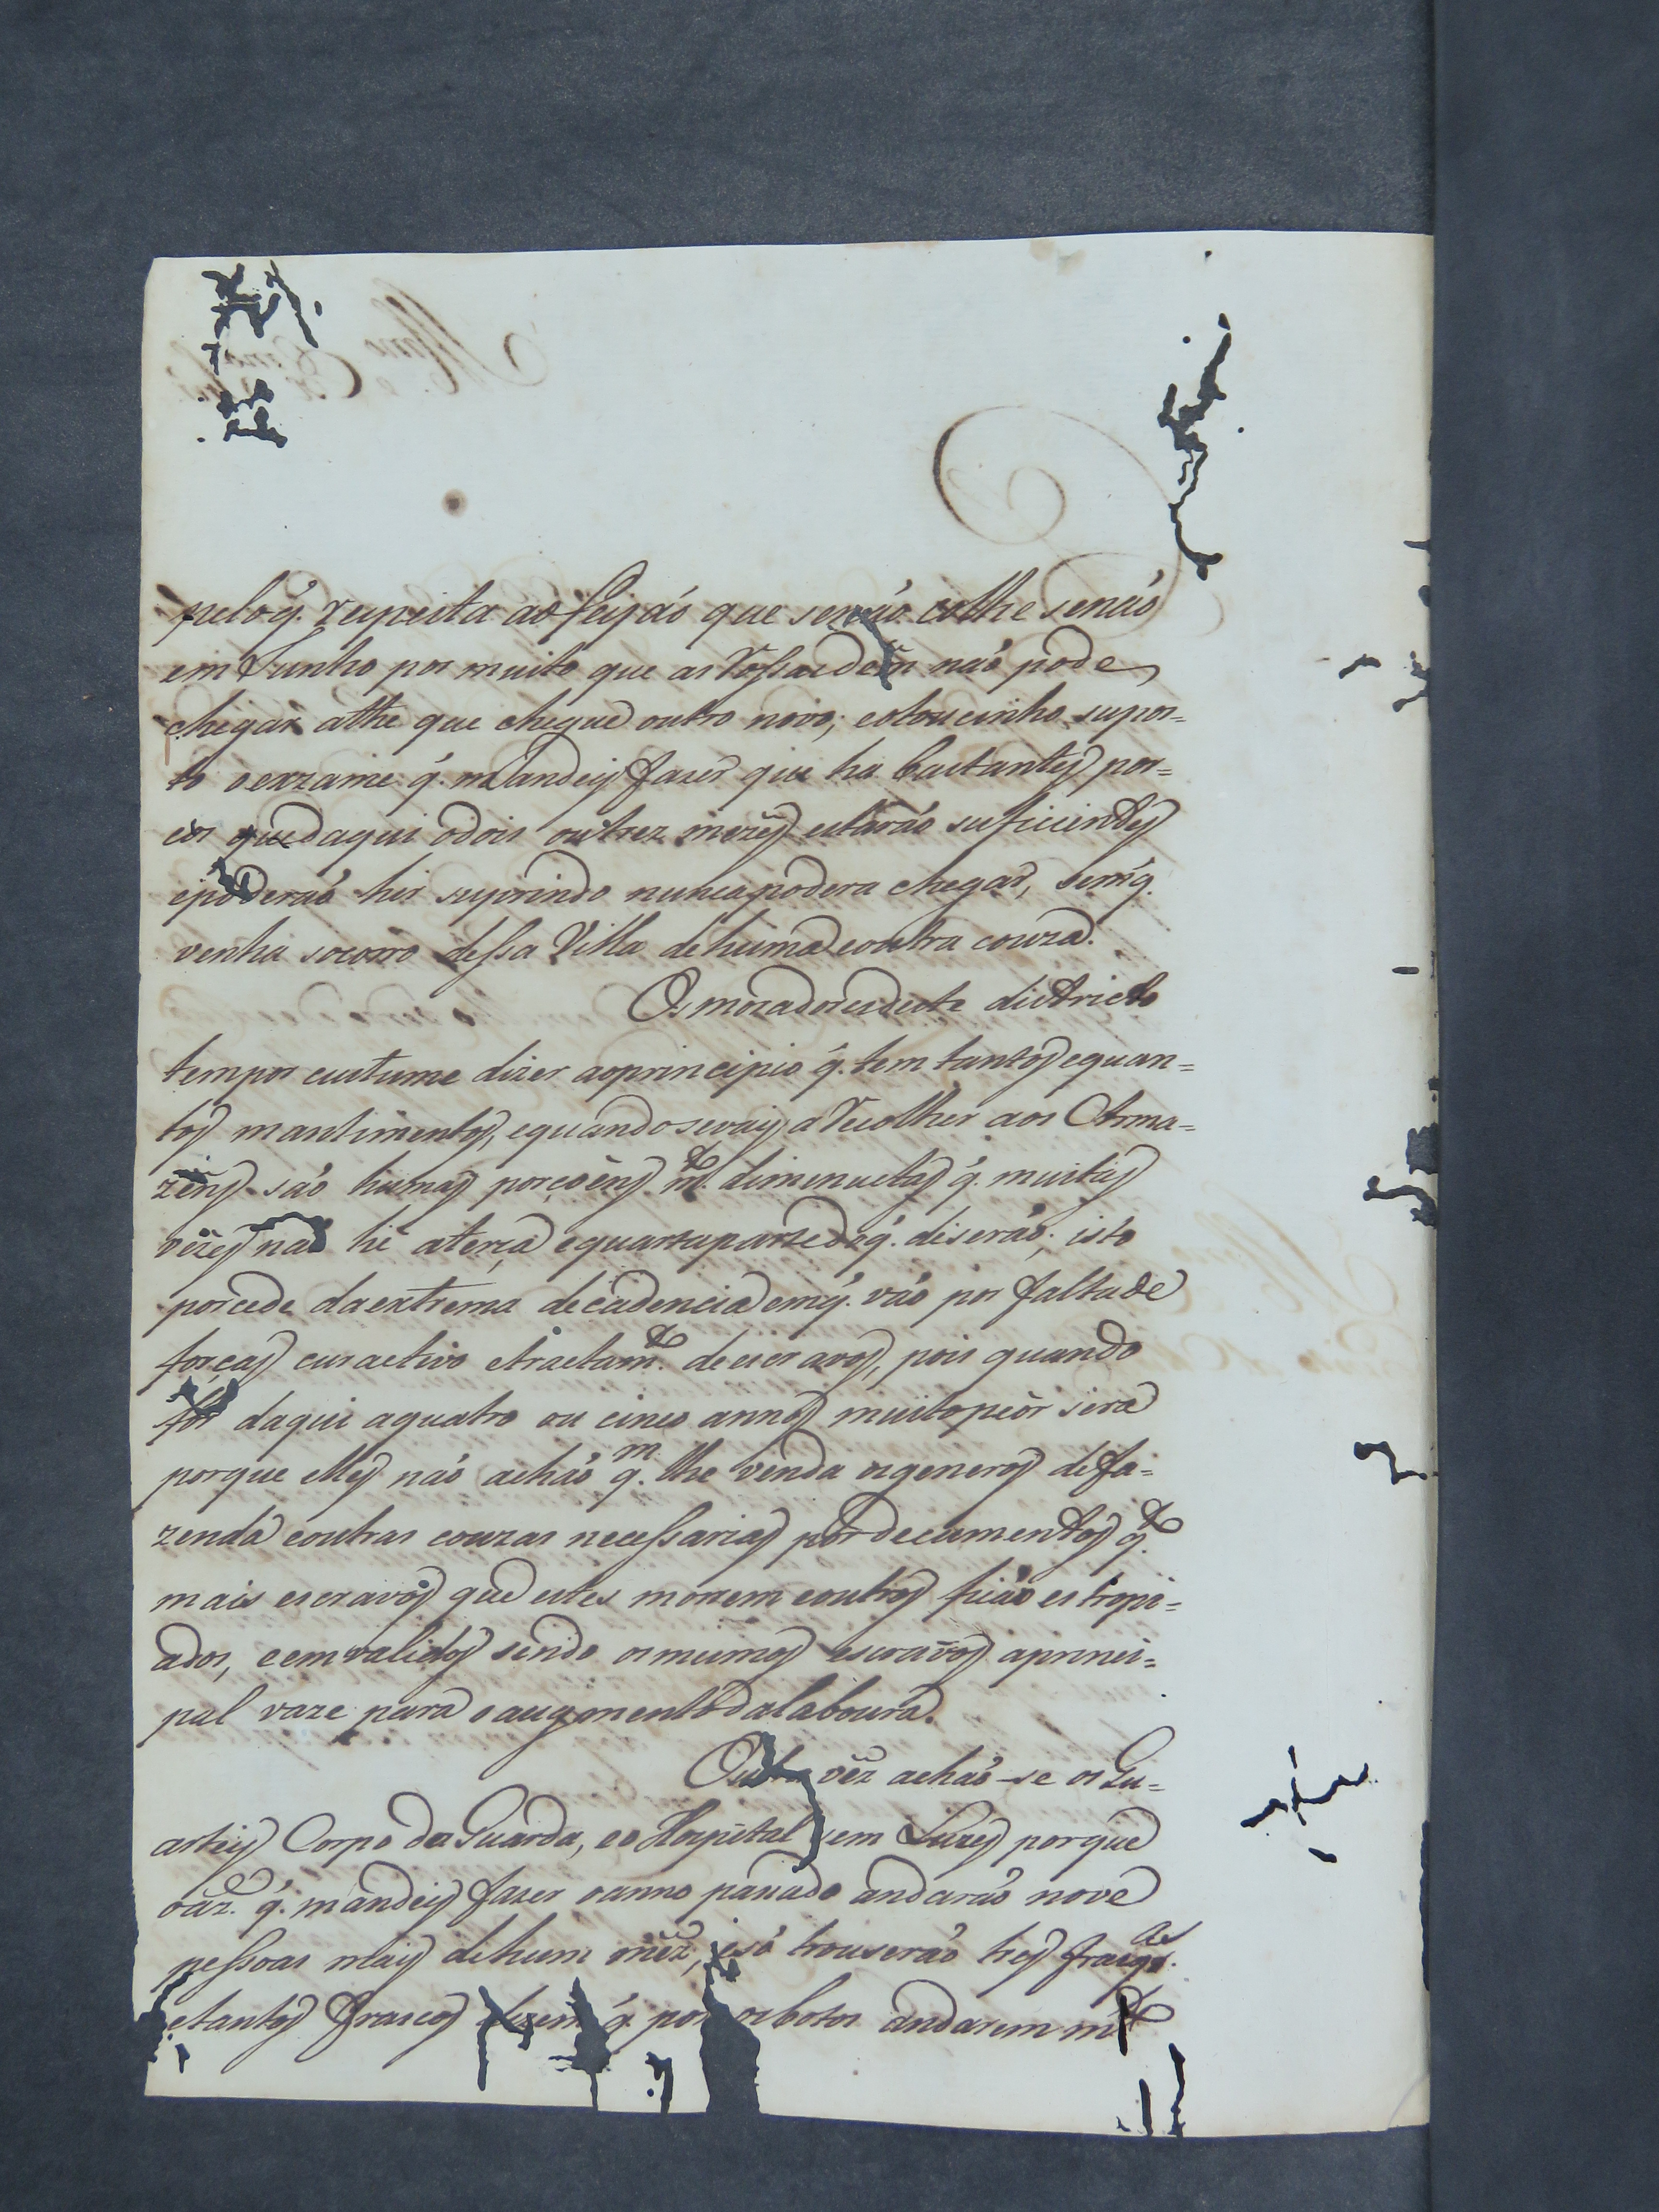 pelo q̃. respeita ao feijaó que senaó colhe senaó
em Junho por muito que as Rossas dem naó pode
chegar athe que chegue outro novo; eotoucinho supos=
to oexzame q̃. mandeis fazer que ha bastantes por=
cos que daqui adois outrez mezes estaraó suficientes
epoderaó hir suprindo nunca podera chegar, sem q̃.
venha socorro dessa Villa dehuma eoutra couza.
Os moradores deste districto
tem por custume dizer aoprincipio q̃. tem tantos equan=
tos mantimentos, equando sevais a Recolher aos Arma=
zens saó humas porçoens m.to diminuctas q̃. muitas
vezes naó he aterça equarta parte do q̃. diseraó; isto
porcede da extrema decadencia em q̃. vaó por falta de
forças cur activo etractam.to de escravos, pois quando
for daqui aquatro ou cinco annos muito peór sera
porque elles naó achaó q.m lhe venda os generos de fa=
zenda eoutras couzas necessarias por decumentos q.to
mais escravos que estes morrem eoutros ficaó estropi=
ados, eemvalidos sendo os mesmos escravos aprinci=
pal vaze para o augmento da laboura.
Outra vez achaó-se os Qu=
arteis Corpo da Guarda, eo Hospital sem Luzes porque
oaz.e q̃. mandeis fazer oanno pasado andaraó nove
pessoas mais dehum mez, esó trouseraó tres frasq.as
etantos frascos dizem q̃. por os botos andarem m.to